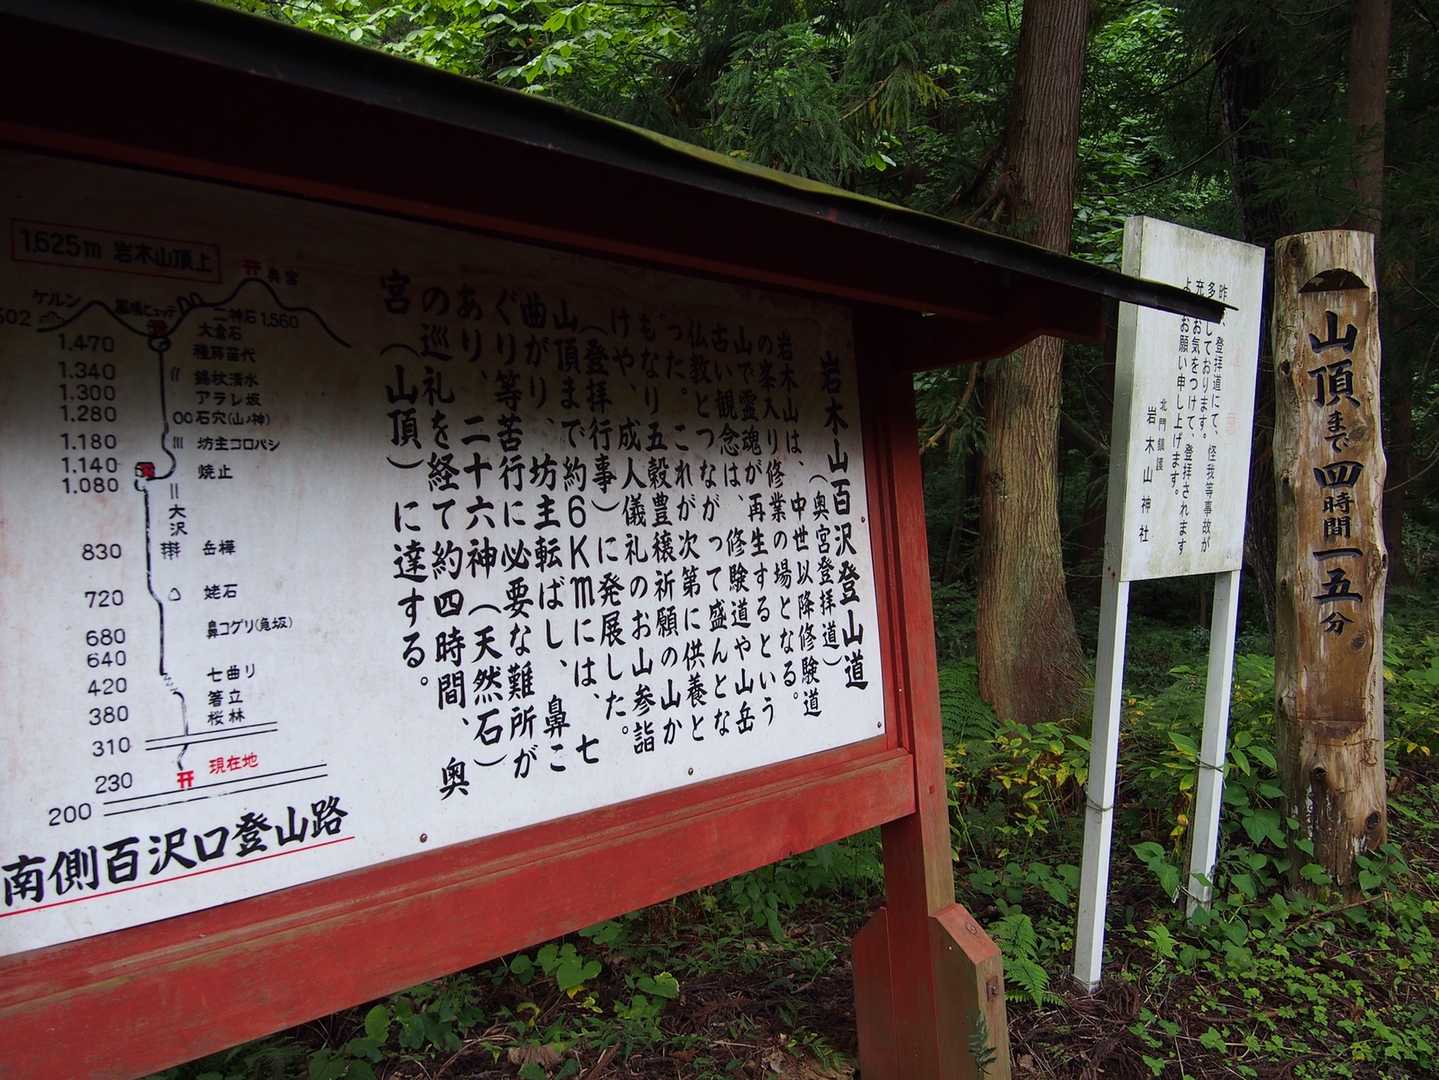 岩木山百沢登山道
(奥宮登拝道)
岩木山は、中世以降修験道
の峯入り修業の場となる。
山で霊魂が再生するという
古い観念は、修験道や山岳
仏教とつながって盛んとな
った。これが次第に供養と
もなり五穀豊穣祈願の山か
けや、成人儀礼のお山参詣
(登拝行事)に発展した。
山頂まで約6Kmには、七
曲がり、坊主転ばし、鼻こ
ぐり等苦行に必要な難所が
あり、二十六神(天然石)
の巡礼を経て約四時間、奥
宮(山頂)に達する。
1,625m 岩木山頂上
奥宮
ケルン
二神石 1,560
大倉石
1.470
種蒔苗代
1.340
錫杖清水
1.300
アラレ坂
1.280
石穴(山ノ神)
1.180
坊主コロバシ
1.140
焼止
1.080
大沢
830
岳樺
720
姥石
680
鼻コグリ(急坂)
640
七曲り
420
箸立
380
桜林
310
現在地
230
200
南側百沢口登山路
登拝道にて、怪我等事故が
多しております。
お気をつけて、登拝されます
お願い申し上げます。
北門鎮護
岩木山神社
山頂まで四時間一五分